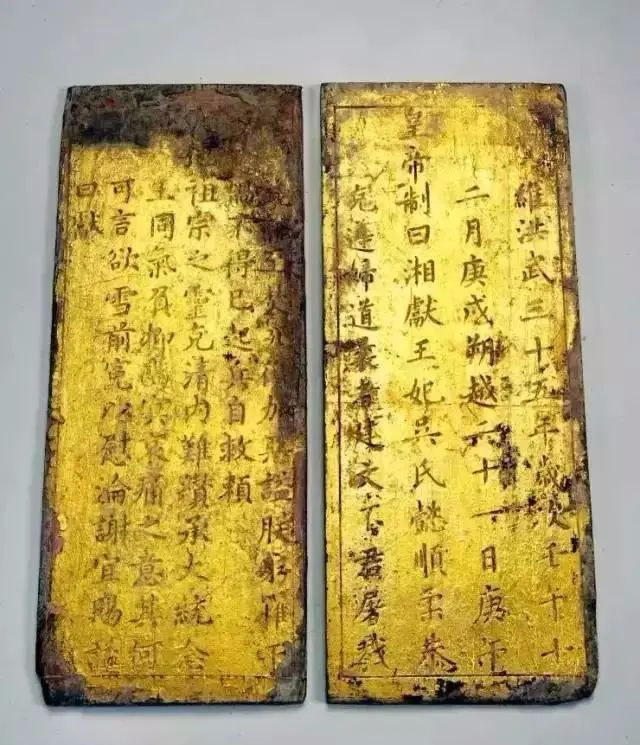 維洪武三十五年歲次壬午十
二月庚戌朔越二十一日庚午
皇帝制曰湘獻王妃吳氏懿順柔恭
克遵婦道曩者建文不君屠戮
加惡謚朕罹于
禍不得已起兵自救賴
祖宗之靈克清內難纘承大統念
王同氣負抑哀痛之意其何
可言欲雪前冤以慰淪謝宜賜謚
曰獻